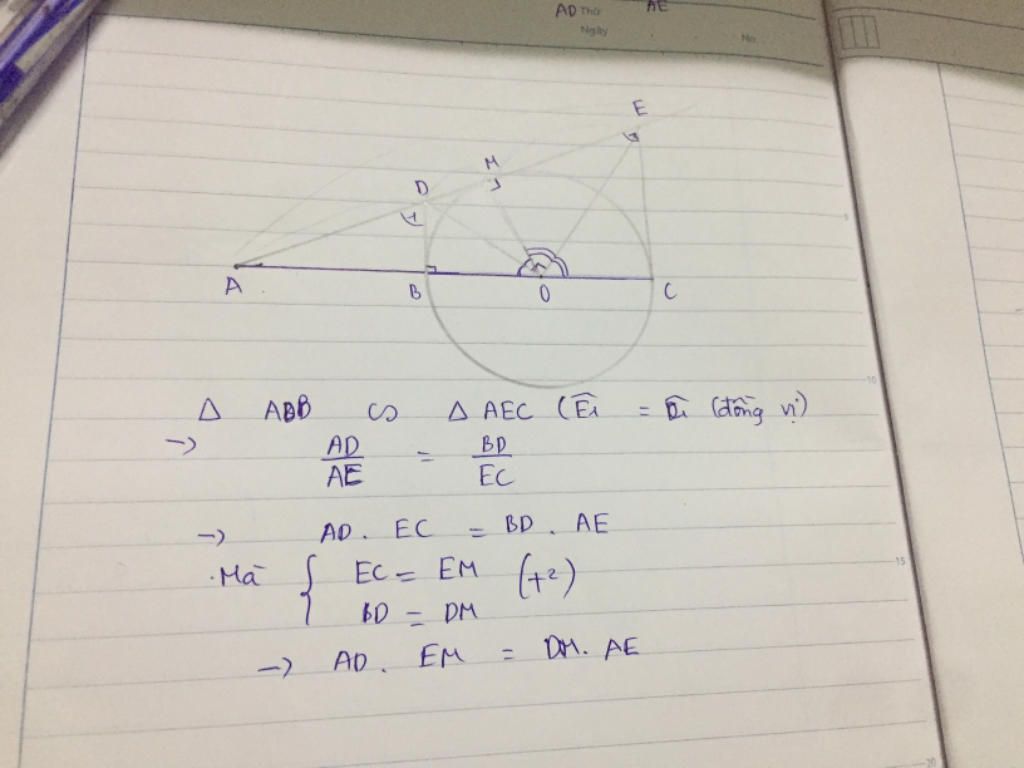 AD Thứ AE
Ngày No.
E
M
D
A B O C
5
10
Δ ADB ∽ Δ AEC (Ê₁ = D̂₁ (đồng vị)
→ AD/AE = BD/EC
→ AD . EC = BD . AE
. Mà { EC = EM (t²)
15
BD = DM
→ AD . EM = DM. AE
20